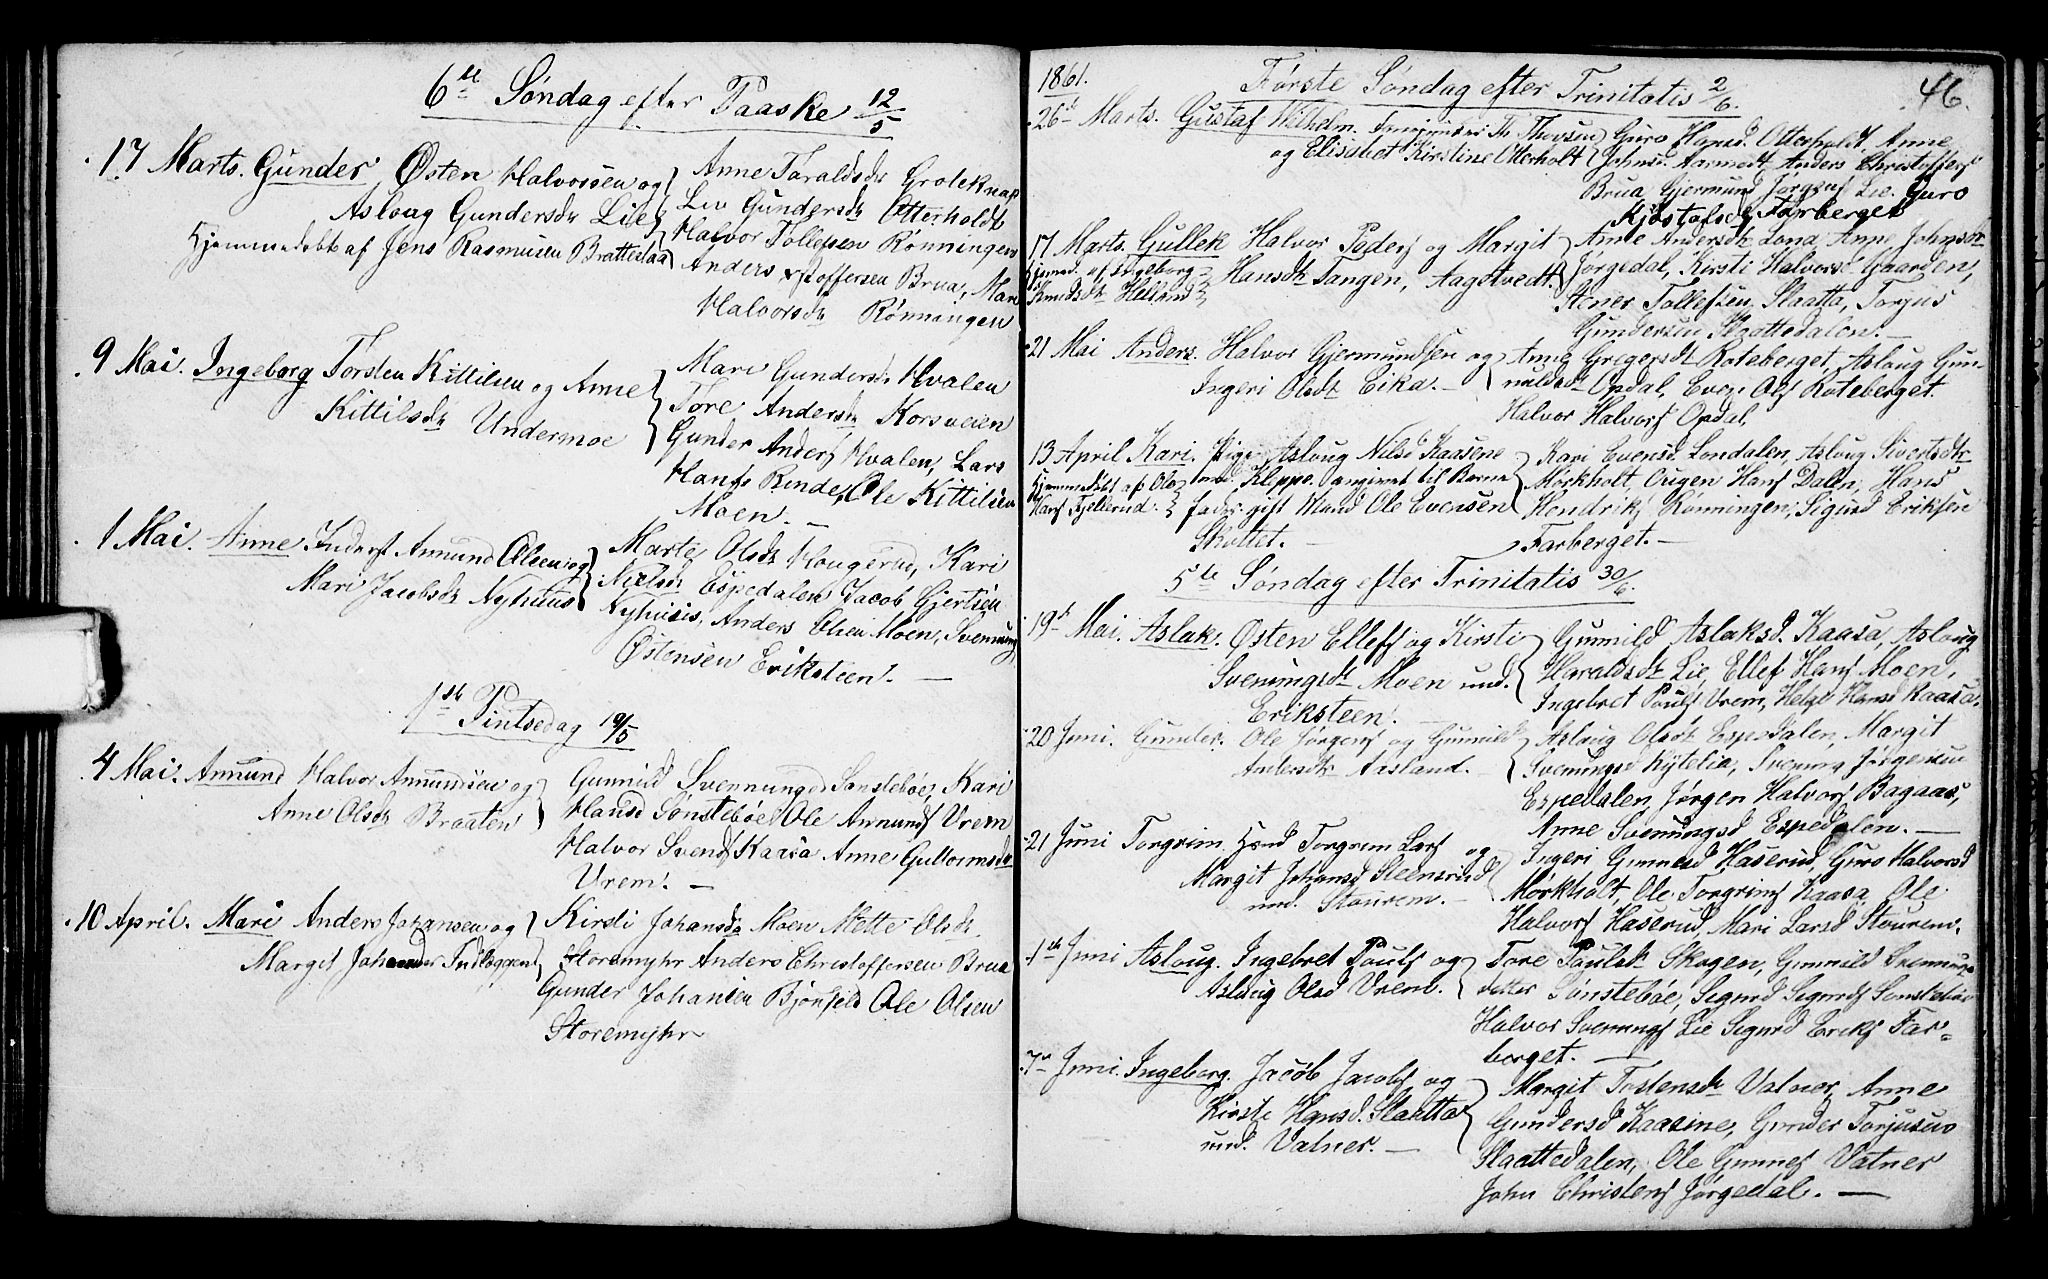 6te Søndag efter Paaske 12/5
17 Marts. Gunder Østen Halvorssen og
Asloug Gundersdr Lie
Hjemmedøbt af Jens Rasmusen Brattestaa
Anne Taraldsdr Groteknap
Liv Gundersdr Otterholdt
Halvor Tollefsen Rønningen
Anders Xstoffersen Brua, Mari
Halvorsdr Rønningen
9 Mai. Ingeborg Torsten Kittilsen og Anne
Kittilsdr Undermoe
Mari Gundersdr Hvalen
Tore Andersdr Korsveien
Gunder Anders Hvalen, Lars
Hans Rinde, Ole Kittilsen
Moen. —
1 Mai. Anne Inderst Anmund Olsen og
Mari Jacobsdr Nyhuus
Marte Olsdr Hougerud, Kari
Nielsdr Espedalen Jacob Gjertsen
Nyhusis, Anders Olsen Moen, Svennung
Østensen Eriksteen. —
1ste Pintsedag 19/5
4 Mai. Anmund Halvor Anmundsen og
Anne Olsdr Braaten
Gunnild Svennungsd Sønstebøe, Kari
Hansd Sønstebøe Ole Anmunds Urem
Halvor Svends Kaasa Anne Gullormsdr
Urem. —
10 April. Mari Anders Johansen og
Margit Johansdr Indlæggerend
Kirsti Johansdr Moen Mette Olsdr
Storemyhr Anders Christoffersen Brua
Gunder Johansen Bjønfjeld Ole Olsen
Storemyhr
1861. Første Søndag efter Trinitatis 2/6. 46.
26de Marts. Gustaf Wilhelm. Th. Thovsen
og Elisabet Kirstine Oterholt
Guro Hansd. Otterholdt, Anne
Johnsd. Aarmodt Anders Christoffers
Brua Gjermund Jørgens Lie. Guro
Kjøstofsdr Farberget
17 Marts. Gullek Halvor Peders og Margit
Hjemd. af Ingeborg
Hansdt Tangen, Aagetvedt.
Knudsdt Helland
Anne Andersdt Lona, Anne Johnsdr
Jørgedal, Kirsti Halvorsd Gaarden,
Stener Tollefsen, Slaatta, Torjus
Gundersen Slaattedalen. —
21 Mai Anders. Halvor Gjermundsen og
Ingeri Olsdt Eika. —
Anne Gregersdt Roteberget, Aslaug Gun-
nuldsdt Opdal, Even Ols Roteberget.
Halvor Halvors Opdal,
13 April Kari. Pige Aslaug Nilsd Kaasene
Hjemmedøbt af Ole
Hans Fjellerud.
und. Kleppe. angivet til Barne
fader gift Mand Ole Evensen
Skottet. —
Kari Evensd. Londalen, Aslaug Sivertsdtr
Mørkholt, Ougen Hans Dalen, Hans
Hendriks Rønningen, Sigurd Eriksen
Farberget. —
5te Søndag efter Trinitatis 30/6.
19de Mai. Aslak. Østen Ellefs og Kirsti
Sveningsdt Moen und.
Eriksteen. —
Gunnild Aslaksd. Kaasa, Aslaug
Haraldsdt Lie, Ellef Hans Moen,
Ingebret Pouls Urem, Helge Hansd Kaasa.
20 Juni. Gunder. Ole Jørgens og Gunnild
Andersdt Aasland. —
Aslaug Olsdt Espedalen, Margit
Sveningsd Kytelia, Svening Jørgensen
Espedalen, Jørgen Halvors Bagaas,
Anne Sveningsd Espedalen. —
21 Juni Torgrim. Hsmd Torgrim Lars og
Margit Johansd Steensrud
und. Stourem. —
Ingeri Gunnesd Haserud, Guro Halvorsd
Mørkholt, Ole Torgrims Kaasa, Ole
Halvors Haserud, Mari Larsd Stourem.
1ste Juni Aslaug. Ingebret Pouls og
Aslaug Olsd Urem.
Tore Poulsdr Skogen, Gunnild Svennungs
datter Sønstebøe, Sigurd Sigurds Sønstebøe
Halvor Svenungs Lie Sigurd Eriks Far-
berget. —
7de Juni. Ingeborg. Jacob Jacobs og
Kirste Hansd. Slaatta
und. Valner. —
Margit Tostensdr Valner, Anne
Gundersd Kaasine, Gunder Torjusen
Slaattedalen, Ole Gunnes Vatner
John Christens Jørgedal. —